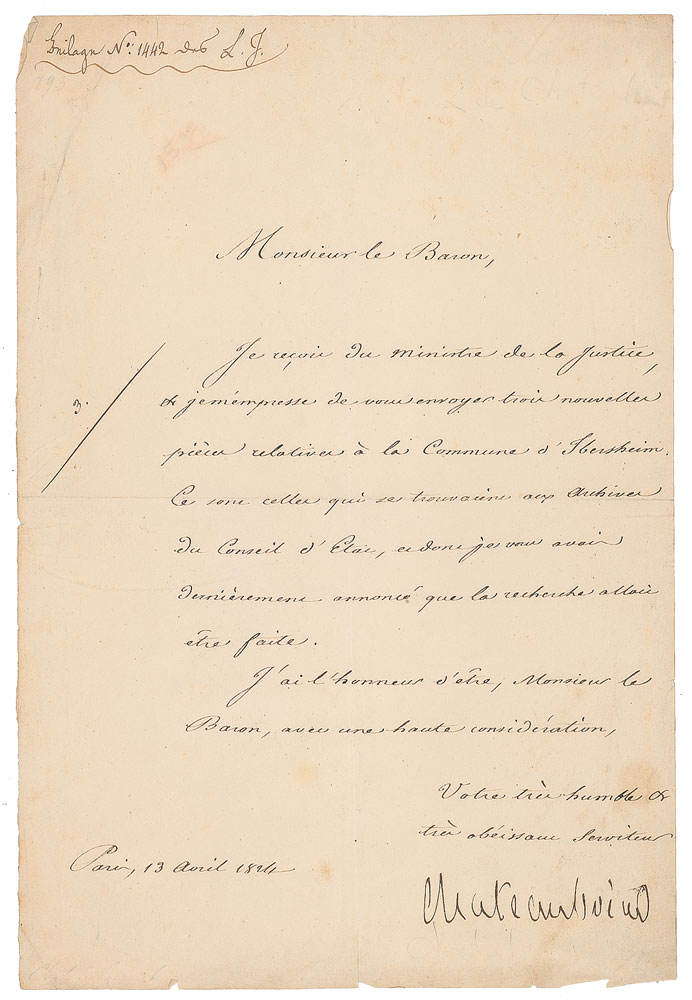 Beilage No: 1442 des L. J.
Monsieur le Baron,
3.
Je reçois du ministre de la Justice,
& je m'empresse de vous envoyer trois nouvelles
pièces relatives à la Commune d'Ibersheim.
Ce sont celles qui se trouvaient aux Archives
du Conseil d'Etat, et dont je vous avais
dernièrement annoncé que la recherche allait
être faite.
J'ai l'honneur d'être, Monsieur le
Baron, avec une haute considération,
Votre très humble &
très obéissant Serviteur
Paris, 13 Avril 1824
Chateaubriand